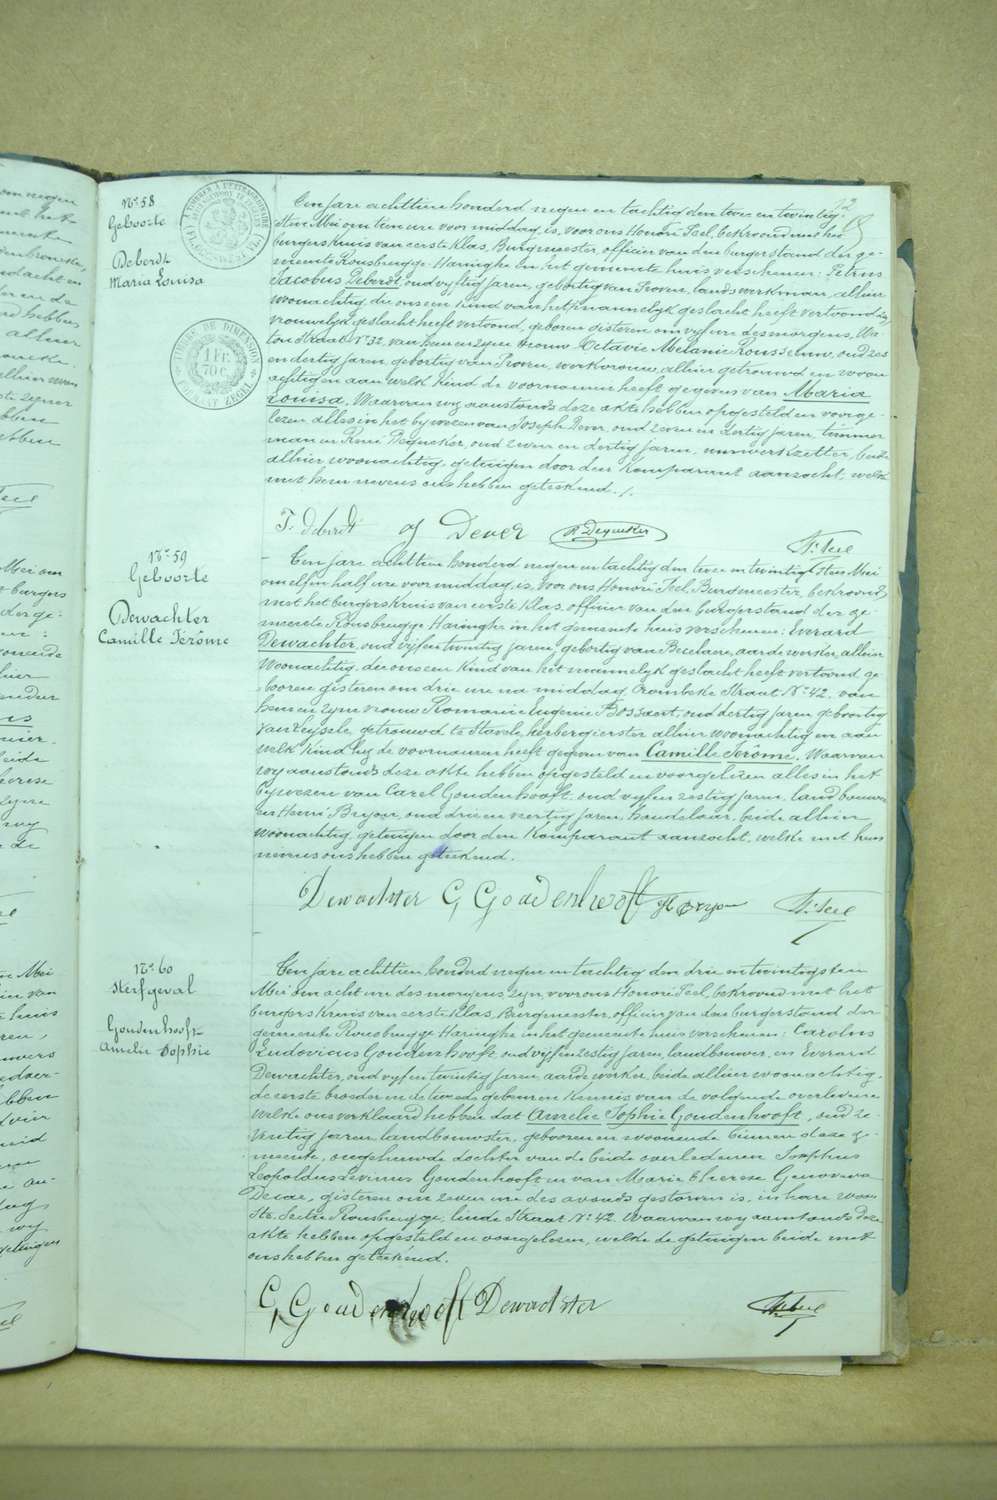 N.º 58
Geboorte
Deberdt
Maria Louisa
TIMBRE DE DIMENSION
1 FR.
70 C.
FORMAAT ZEGEL
Ten jare achttien honderd negen en tachtig den twee en twintig-
sten Mei om tien ure voor middag, is, voor ons Honoré Peel, bekroond met het
burgerskruis van eerste klas, Burgmeester, officier van den burgerstand der ge-
meente Rousbrugge-Haringhe in het gemeente huis verschenen: Petrus
Jacobus Deberdt, oud vyftig jaren, geboortig van Proven, landswerkman, alhier
woonachtig, die ons een kind van het mannelyk geslacht heeft vertoond
vrouwelyk geslacht heeft vertoond, geboren gisteren om vyf ure des morgens, Wa-
tou Straat N.º 32, van hem en zyne vrouw Octavie Melanie Rousseeuw, oud zes
en dertig jaren, geboortig van Proven, werkvrouw, alhier getrouwd en woon-
achtig en aan welk kind de voornamen heeft gegeven van Maria
Louisa. Waarvan wy aanstonds deze akte hebben opgesteld en voorge-
lezen alles in het bywezen van Joseph Dever, oud zeven en dertig jaren, timmer
man en René Dequeker, oud zeven en dertig jaren, uurwerkzetter, beide
alhier woonachtig, getuigen door den komparant aanzocht, welke
met hem nevens ons hebben geteekend./.
Deberdt Dever R Dequeker H. Peel
N.º 59
Geboorte
Dewachter
Camille Jerôme
Ten jare achttien honderd negen en tachtig den twee en twintigsten Mei
om elf en half ure voor middag, is, voor ons Honoré Peel, Burgmeester, bekroond
met het burgerskruis van eerste klas, officier van den burgerstand der ge-
meente Rousbrugge Haringhe in het gemeente huis verschenen: Evrard
Dewachter, oud vyf en twintig jaren, geboortig van Becelaere, aardewerker, alhier
woonachtig, die ons een kind van het mannelyk geslacht heeft vertoond, ge-
boren gisteren om drie ure na middag, Crombeke Straat N.º 42, van
hem en zyne vrouw Romanie Eugenie Bossaert, oud dertig jaren geboortig
van Leysele, getrouwd te Stavele, herbergierster alhier woonachtig en aan
welk kind hy de voornamen heeft gegeven van Camille Jerôme. Waarvan
wy aanstonds deze akte hebben opgesteld en voorgelezen alles in het
bywezen van Carel Goudenhooft, oud vyf en zestig jaren, landbouwer
en Henri Bryon, oud drie en veertig jaren, handelaar, beide alhier
woonachtig, getuigen door den komparant aanzocht, welke met hem
nevens ons hebben geteekend.
Dewachter C, Goudenhooft H Bryon H. Peel
N.º 60
Sterfgeval
Goudenhooft
Amelie Sophie
Ten jare achttien honderd negen en tachtig den drie en twintigsten
Mei om acht ure des morgens zyn, voor ons Honoré Peel, bekroond met het
burgerskruis van eerste klas, Burgmeester, officier van den burgerstand der
gemeente Rousbrugge Haringhe in het gemeente huis verschenen: Carolus
Ludovicus Goudenhooft, oud vyf en zestig jaren, landbouwer, en Evrard
Dewachter, oud vyf en twintig jaren, aardewerker, beide alhier woonachtig,
de eerste broeder en de tweede gebuur en kennis van de volgende overledene
welke ons verklaard hebben dat Amelie Sophie Goudenhooft, oud ze-
ventig jaren, landbouwster, geboren en woonende binnen deze ge-
meente, ongehuwde dochter van de beide overledenen Josephus
Leopoldus Livinus Goudenhooft en van Marie Therese Genoveva
gisteren om zeven ure des avonds gestorven is, in hare woon-
Sectie Rousbrugge, linde Straat N.º 42. Waarvan wy aanstonds deze
akte hebben opgesteld en voorgelezen, welke de getuigen beide met
ons hebben geteekend.
C, Goudenhooft Dewachter H. Peel